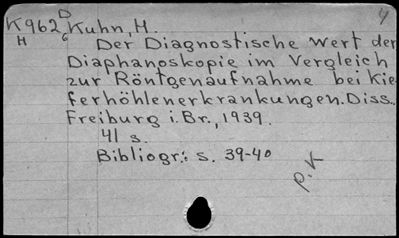 D
K962 Kuhn, H. 4
H 6
Der Diagnostische Wert der
Diaphanoskopie im Vergleich
zur Röntgenaufnahme bei Kie-
ferhöhlenerkrankungen. Diss.,
Freiburg i. Br., 1939.
41 s.
Bibliogr.: s. 39-40